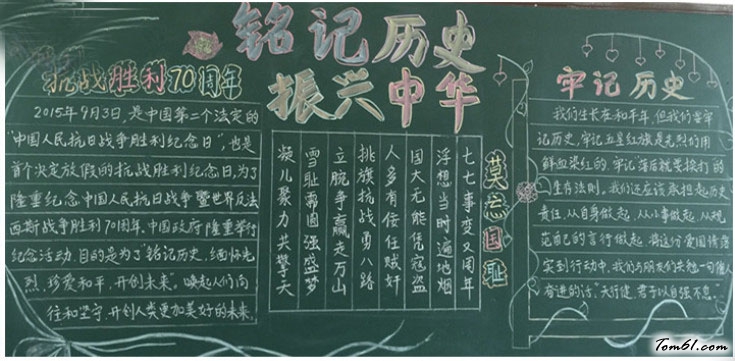 铭记历史
振兴中华
抗战胜利70周年
2015年9月3日,是中国第二个法定的
"中国人民抗日战争胜利纪念日",也是
首个决定放假的抗战胜利纪念日,为了
隆重纪念中国人民抗日战争暨世界反法
西斯战争胜利70周年,中国政府隆重举行
纪念活动,目的是为了"铭记历史、缅怀先
烈、珍爱和平、开创未来"。唤起人们向
往和坚守、开创人类更加美好的未来.
莫忘国耻
七七事变又周年
浮想当时遍地烟
国大无能凭寇盗
人多有佞任贼奸
挑旗抗战勇八路
立腕争赢走万山
雪耻需图强盛梦
凝儿聚力共擎天
牢记历史
我们生长在和平年,但我们要牢
记历史,牢记五星红旗是先烈们用
鲜血染红的,牢记落后就要挨打的
生存法则,我们还应该承担起历史
责任,从自身做起,从小事做起,从规
范自己的言行做起,将这份爱国情落
实到行动中,我们与朋友们共勉一句催人
奋进的话,"天行健,君子以自强不息。"
Tom61.com